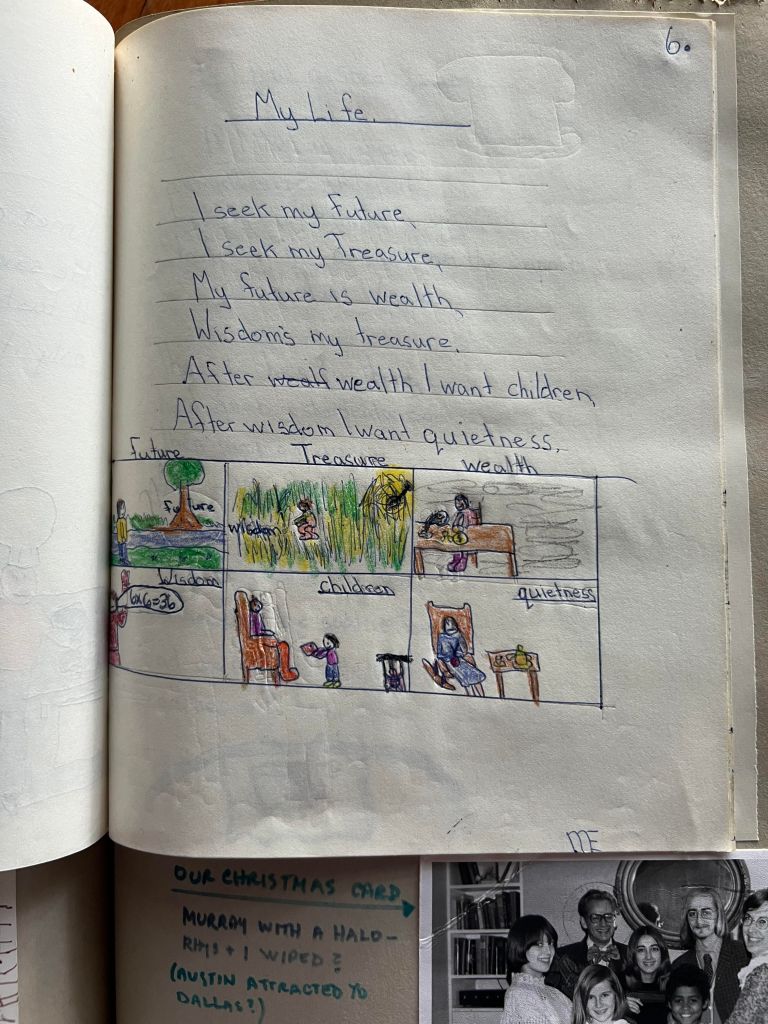 6.
My Life.
I seek my Future,
I seek my Treasure,
My future is wealth,
Wisdom's my treasure.
After wealf wealth I want children,
After wisdom I want quietness.
Future
Treasure
wealth
future
wisdom
Wisdom
children
quietness
6x6=36
ME
OUR CHRISTMAS CARD
MURRAY WITH A HALO-
RHYS + I WIPED?
(AUSTIN ATTRACTED TO
DALLAS?)